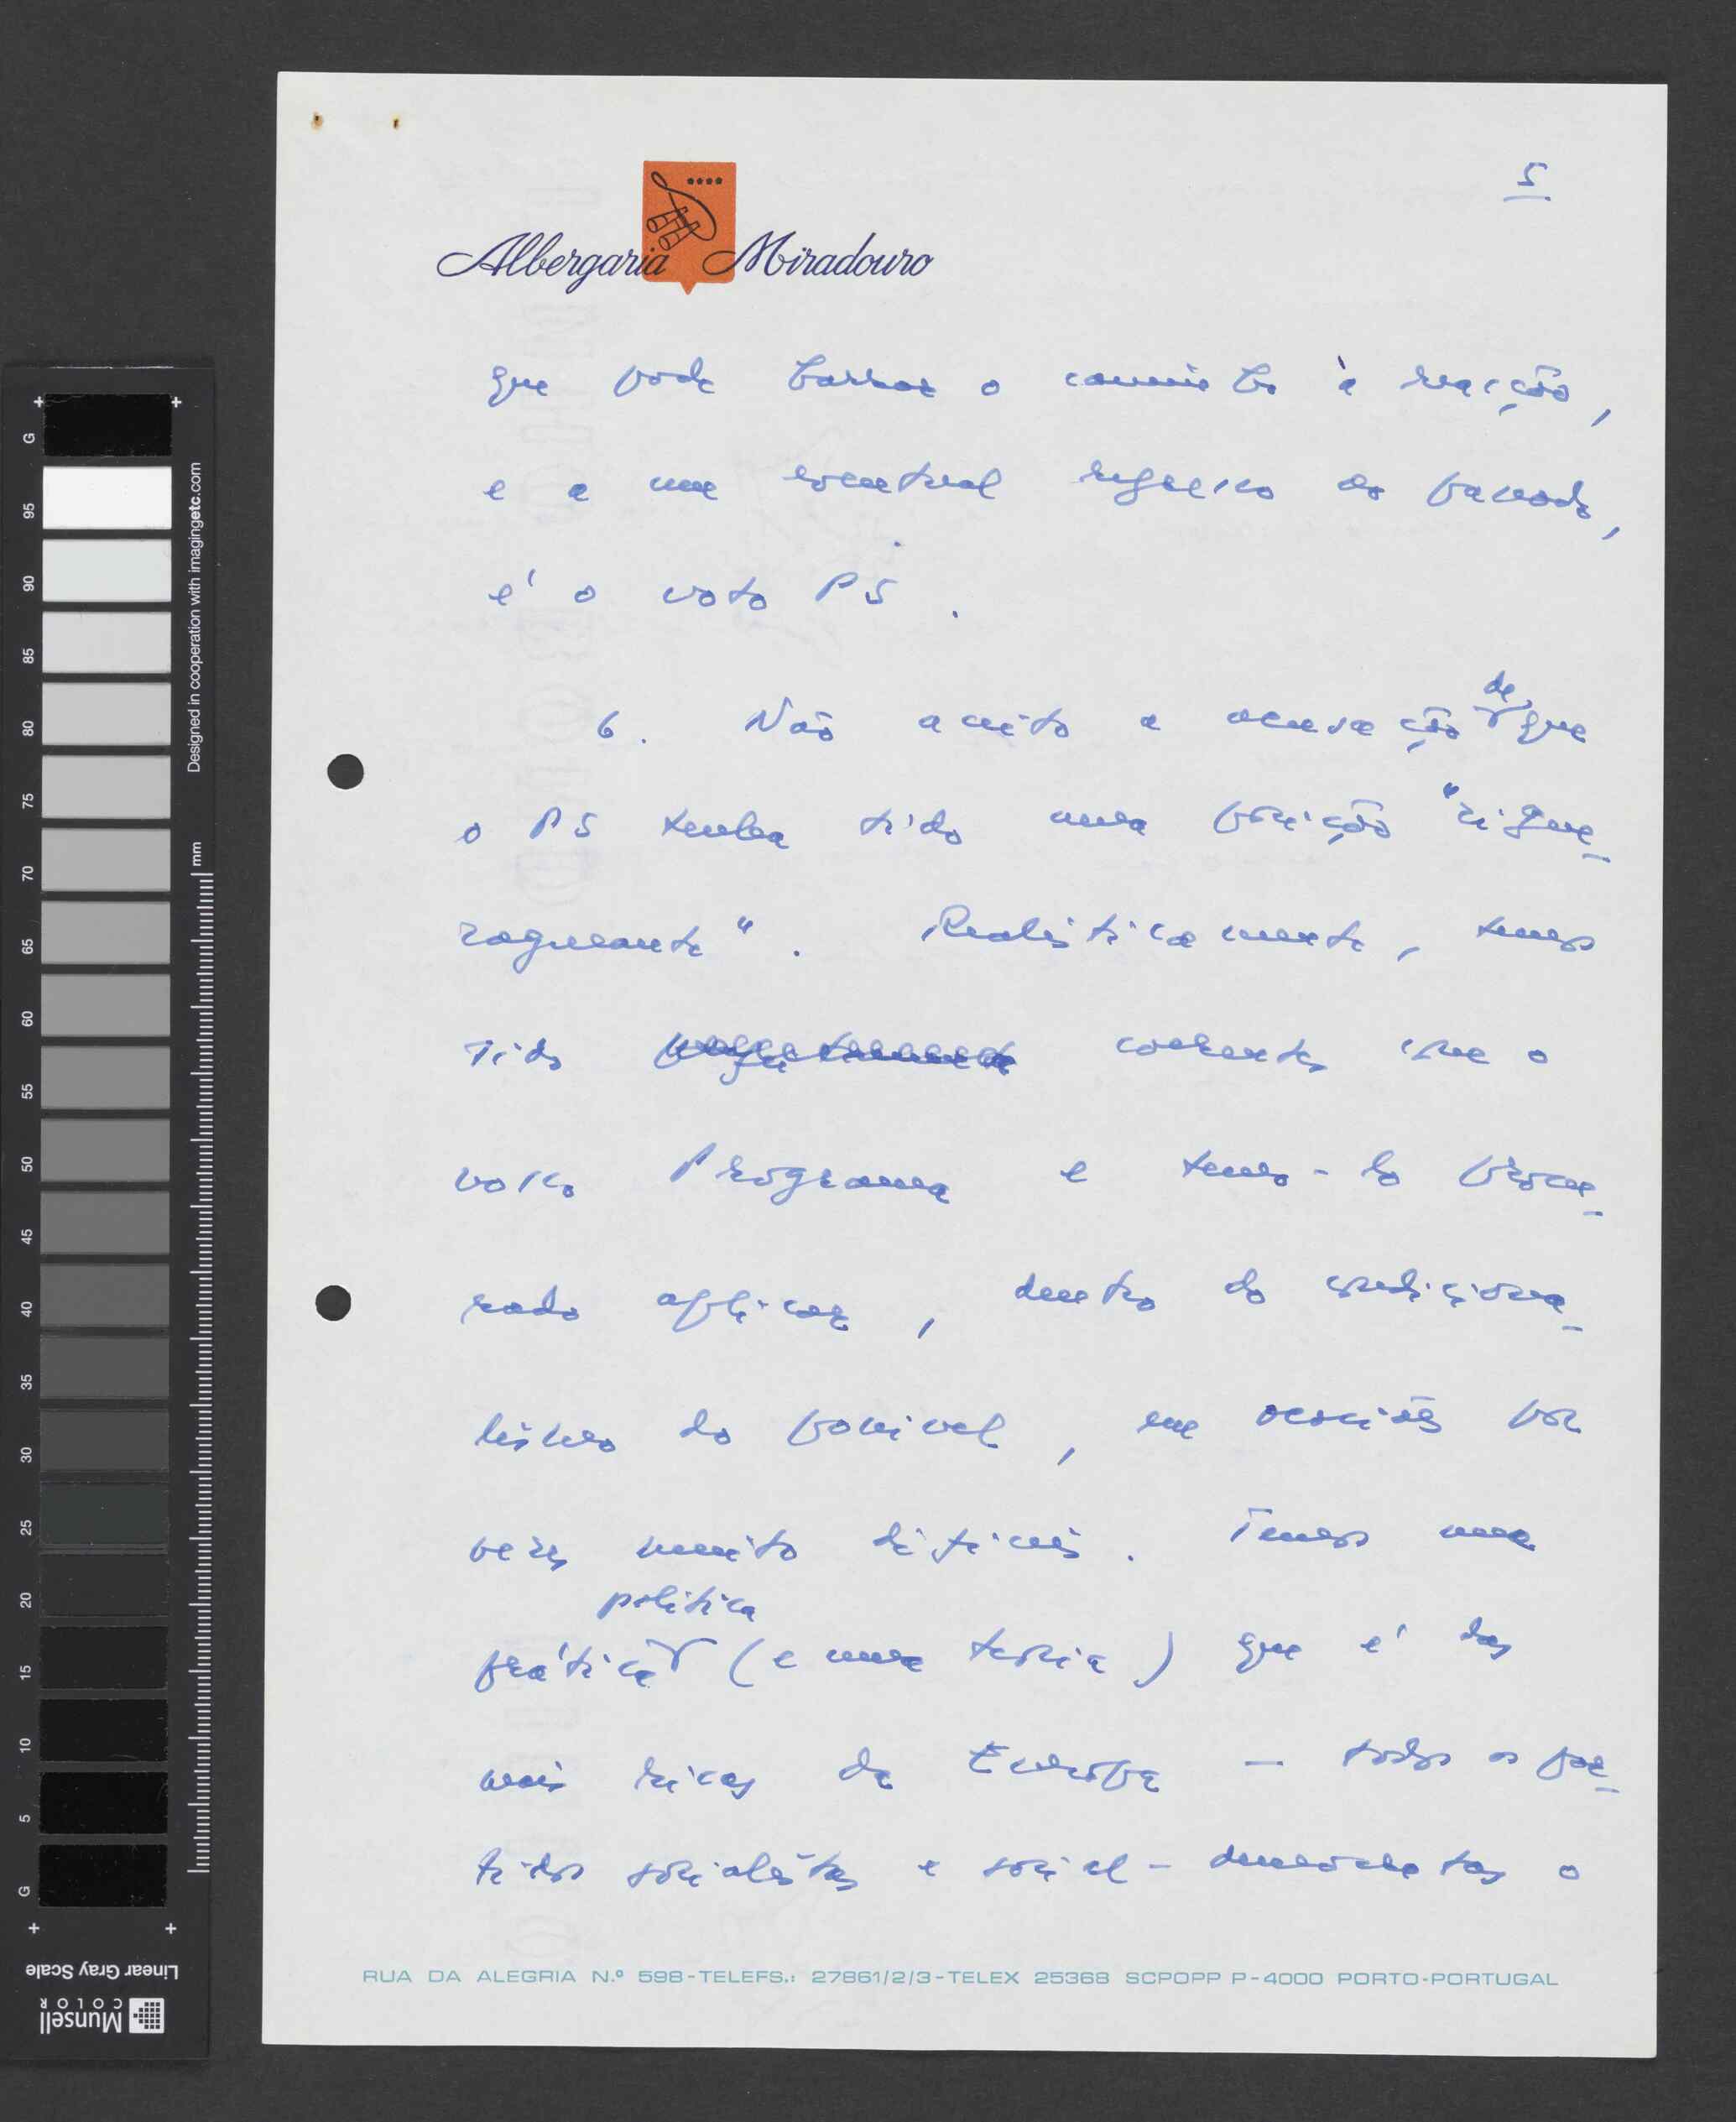 5
Albergaria Miradouro
que pode barrar o caminho à reacção,
e a um eventual regresso ao passado,
é o voto PS.
de
6. Não aceito a acusação que
o PS tenha tido uma posição "zigue-
zagueante". Realisticamente, temos
sido coerentes com o
nosso Programa e temo-lo procu-
rado aplicar, dentro do condiciona-
lismo do possível, em ocasiões por
vezes muito difíceis. Temos uma
política
prática (e uma teoria) que é das
mais ricas da Europa - todos os par-
tidos socialistas e social-democratas o
RUA DA ALEGRIA N.º 598-TELEFS.: 27861/2/3-TELEX 25368 SCPOPP P-4000 PORTO-PORTUGAL
+ +
G
95
90
85
80
75
70
65
60
55
50
45
40
35
30
25
20
15
10
5
G
+ +
mm
Designed in cooperation with imagingetc.com
Linear Gray Scale
Munsell
COLOR